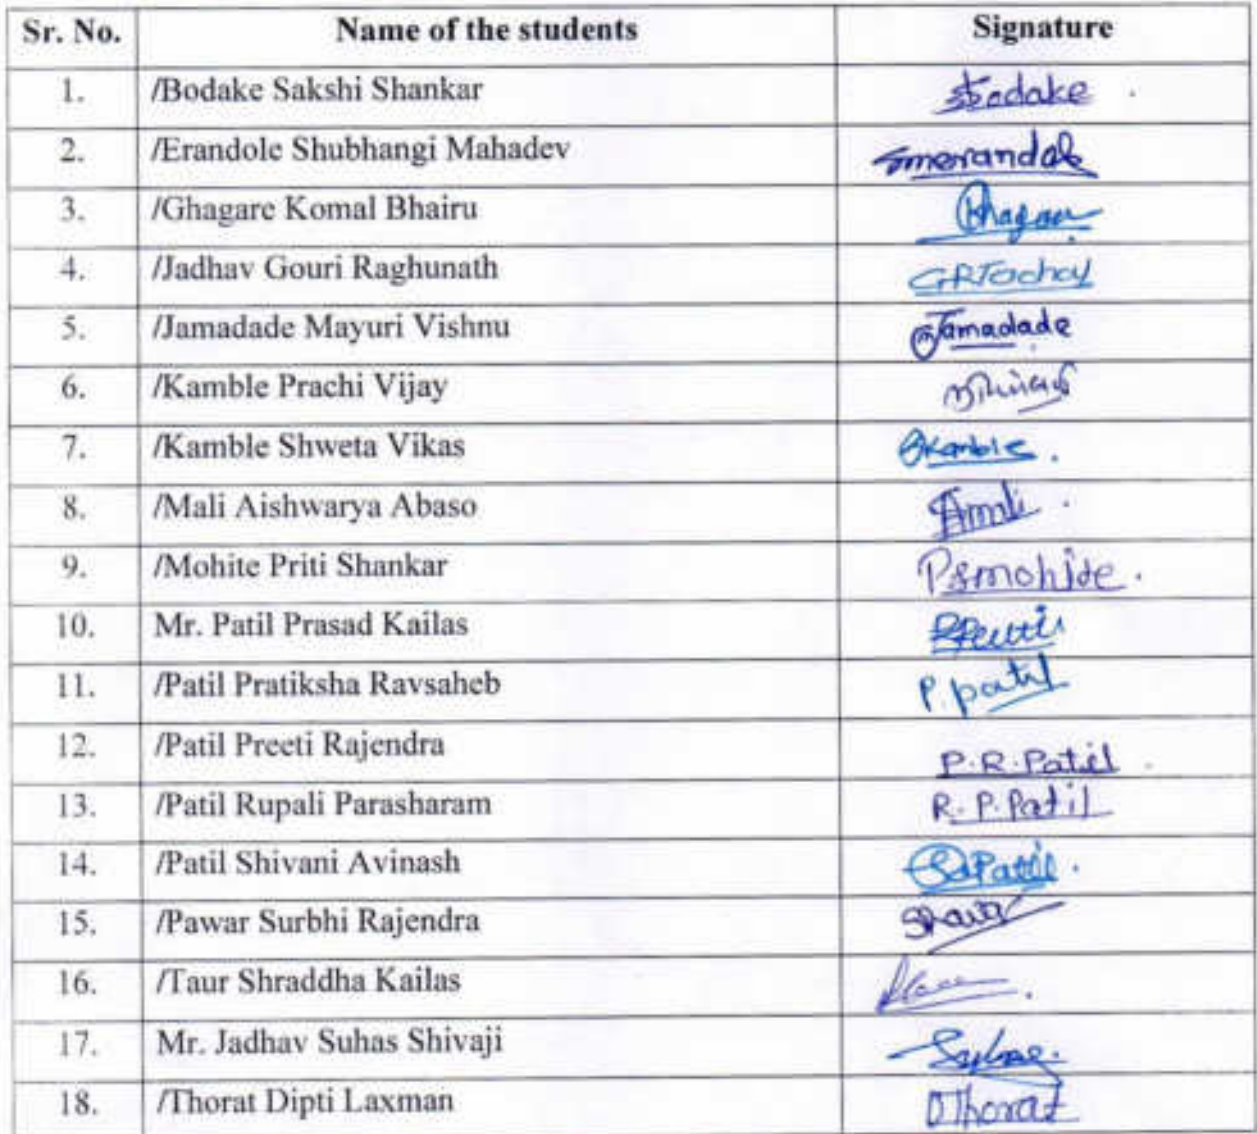 Sr. No. Name of the students Signature
1. /Bodake Sakshi Shankar Bodake
2. /Erandole Shubhangi Mahadev smerandole
3. /Ghagare Komal Bhairu
4. /Jadhav Gouri Raghunath GRJadhav
5. /Jamadade Mayuri Vishnu Jamadade
6. /Kamble Prachi Vijay
7. /Kamble Shweta Vikas SKamble.
8. /Mali Aishwarya Abaso Amali.
9. /Mohite Priti Shankar Psmohite.
10. Mr. Patil Prasad Kailas
11. /Patil Pratiksha Ravsaheb P. patil
12. /Patil Preeti Rajendra P.R.Patil
13. /Patil Rupali Parasharam R.P.Patil
14. /Patil Shivani Avinash SAPatil.
15. /Pawar Surbhi Rajendra
16. /Taur Shraddha Kailas
17. Mr. Jadhav Suhas Shivaji
18. /Thorat Dipti Laxman DThorat